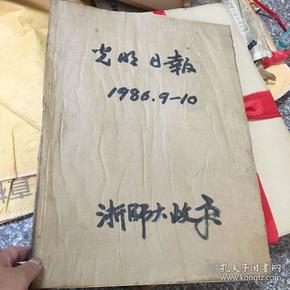 光明日報
1986.9-10
浙師大政系
孔夫子旧书网